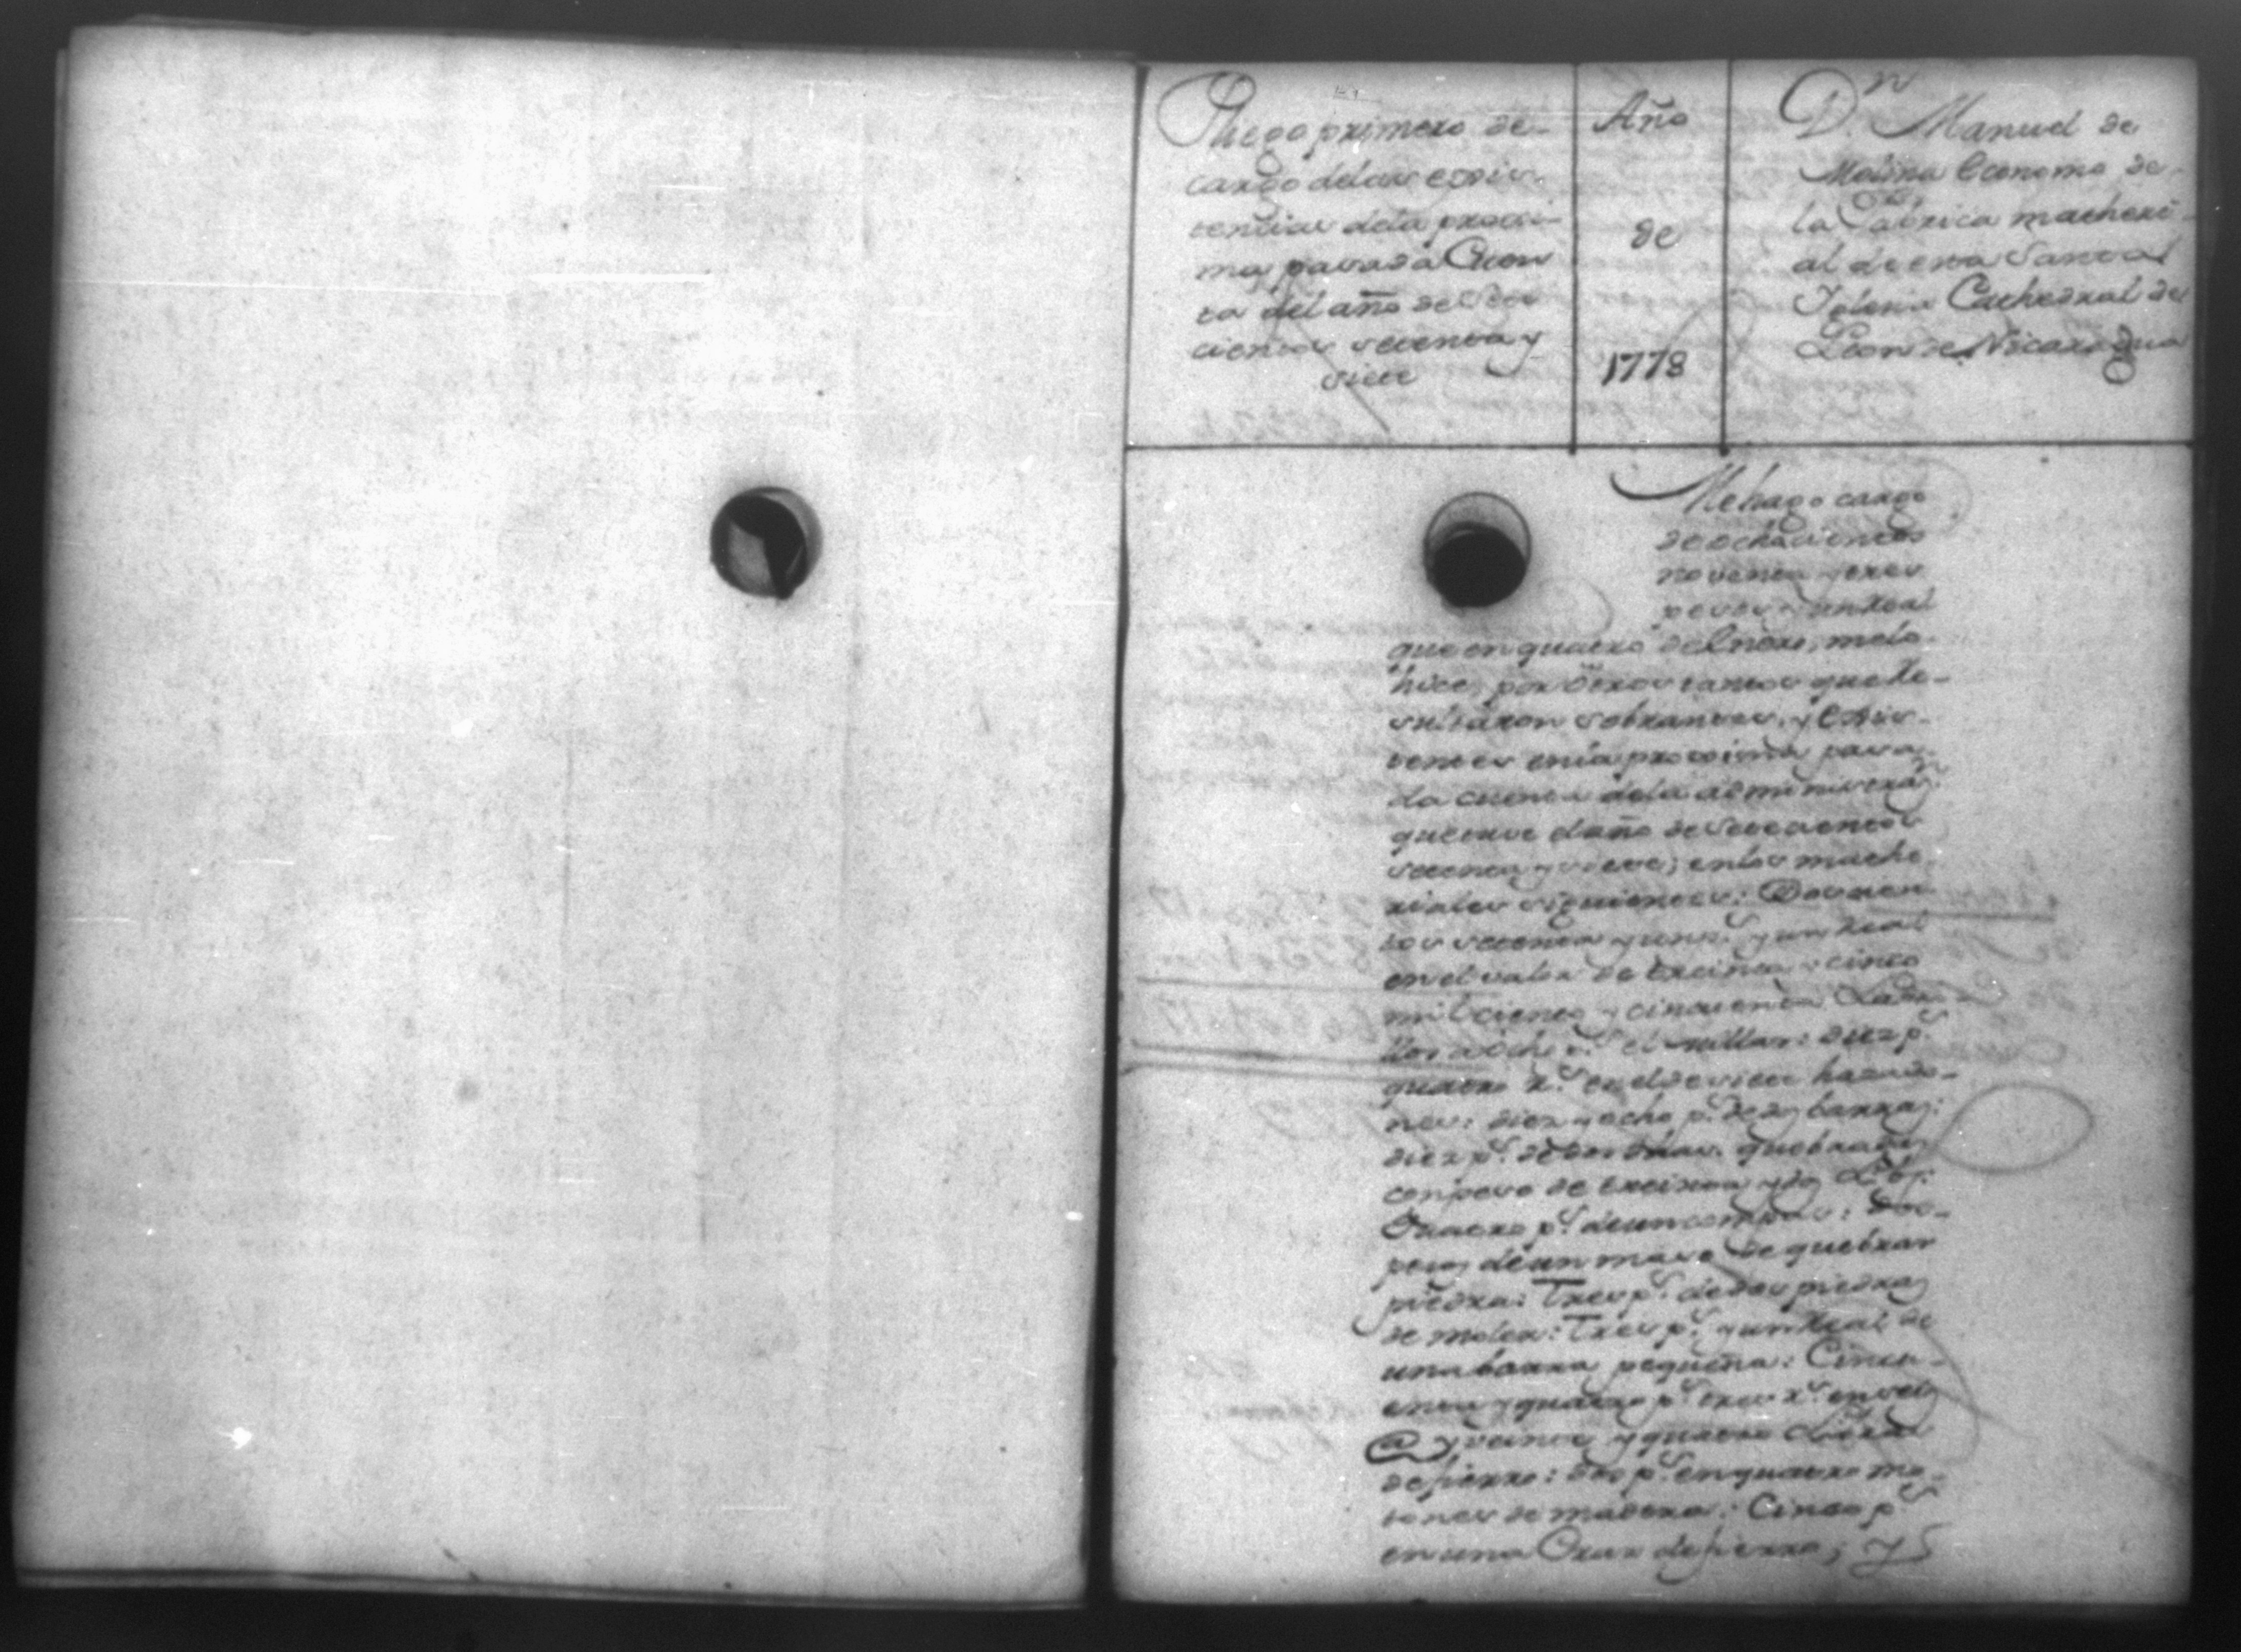 Pliego primero de
cargo delas exis-
tencias dela proxi-
ma pasada Cuen
ta del año de Sete
cientos setenta y
siete
Año
de
1778
Dn. Manuel de
Molina Economo de
la Fabrica macheri-
al de esta Santa
Iglesia Cathedral de
Leon de Nicaragua
Me hago cargo
de ochocientos
noventa y tres
pesos y un Real
que en quatro de Enero, me lo
hice, por otros tantos que Re-
sultaron sobrantes, y Exis-
tentes en la proxima pasa-
da cuenta dela administraón.
que tuve el año de Setecientos
setenta y siete; en los mache-
riales siguientes: Doscien-
tos setenta y un ps. y un Real
en el valor de treinta y cinco
mil ciento y cincuenta Ladri-
llos a ocho ps. el millar: diez ps.
quatro Rs. en el de siete hazado-
nes: diez y ocho ps. de dos barras:
diez ps. de dos dhas. quebradas
con peso de treinta y dos Lbs:
Quatro ps. de un compas: Dos
pesos de un maso de quebrar
piedra: Tres ps. de dos piedras
de moler: Tres ps. y un Real de
una barra pequeña: Cincu-
enta y quatro ps. tres Rs. en seis
@ y veinte y quatro Libras
de fierro: dos ps. en quatro mo-
tones de madera: Cinco ps.
en una Cruz de fierro; y